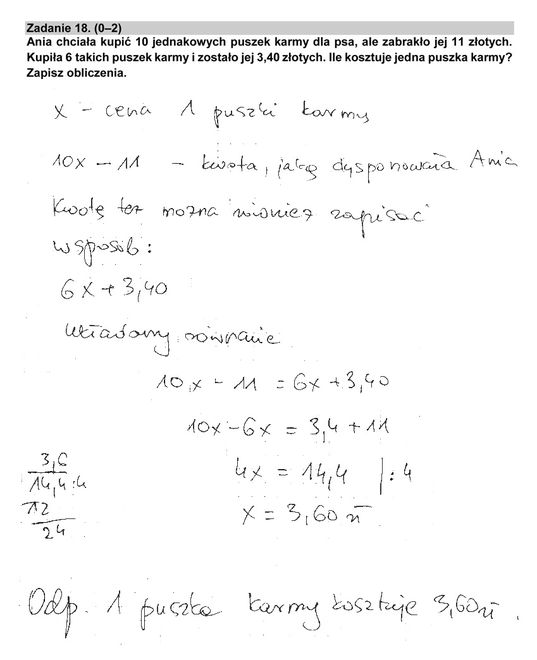 Zadanie 18. (0–2)
Ania chciała kupić 10 jednakowych puszek karmy dla psa, ale zabrakło jej 11 złotych.
Kupiła 6 takich puszek karmy i zostało jej 3,40 złotych. Ile kosztuje jedna puszka karmy?
Zapisz obliczenia.
x – cena 1 puszki karmy
10x – 11 – kwota, jaką dysponowała Ania
Kwotę tez można również zapisać
w sposób:
6x + 3,40
Układamy równanie
10x – 11 = 6x + 3,40
10x – 6x = 3,4 + 11
4x = 14,4 | : 4
x = 3,60 zł
3,6
14,4 : 4
12
24
Odp. 1 puszka karmy kosztuje 3,60 zł.